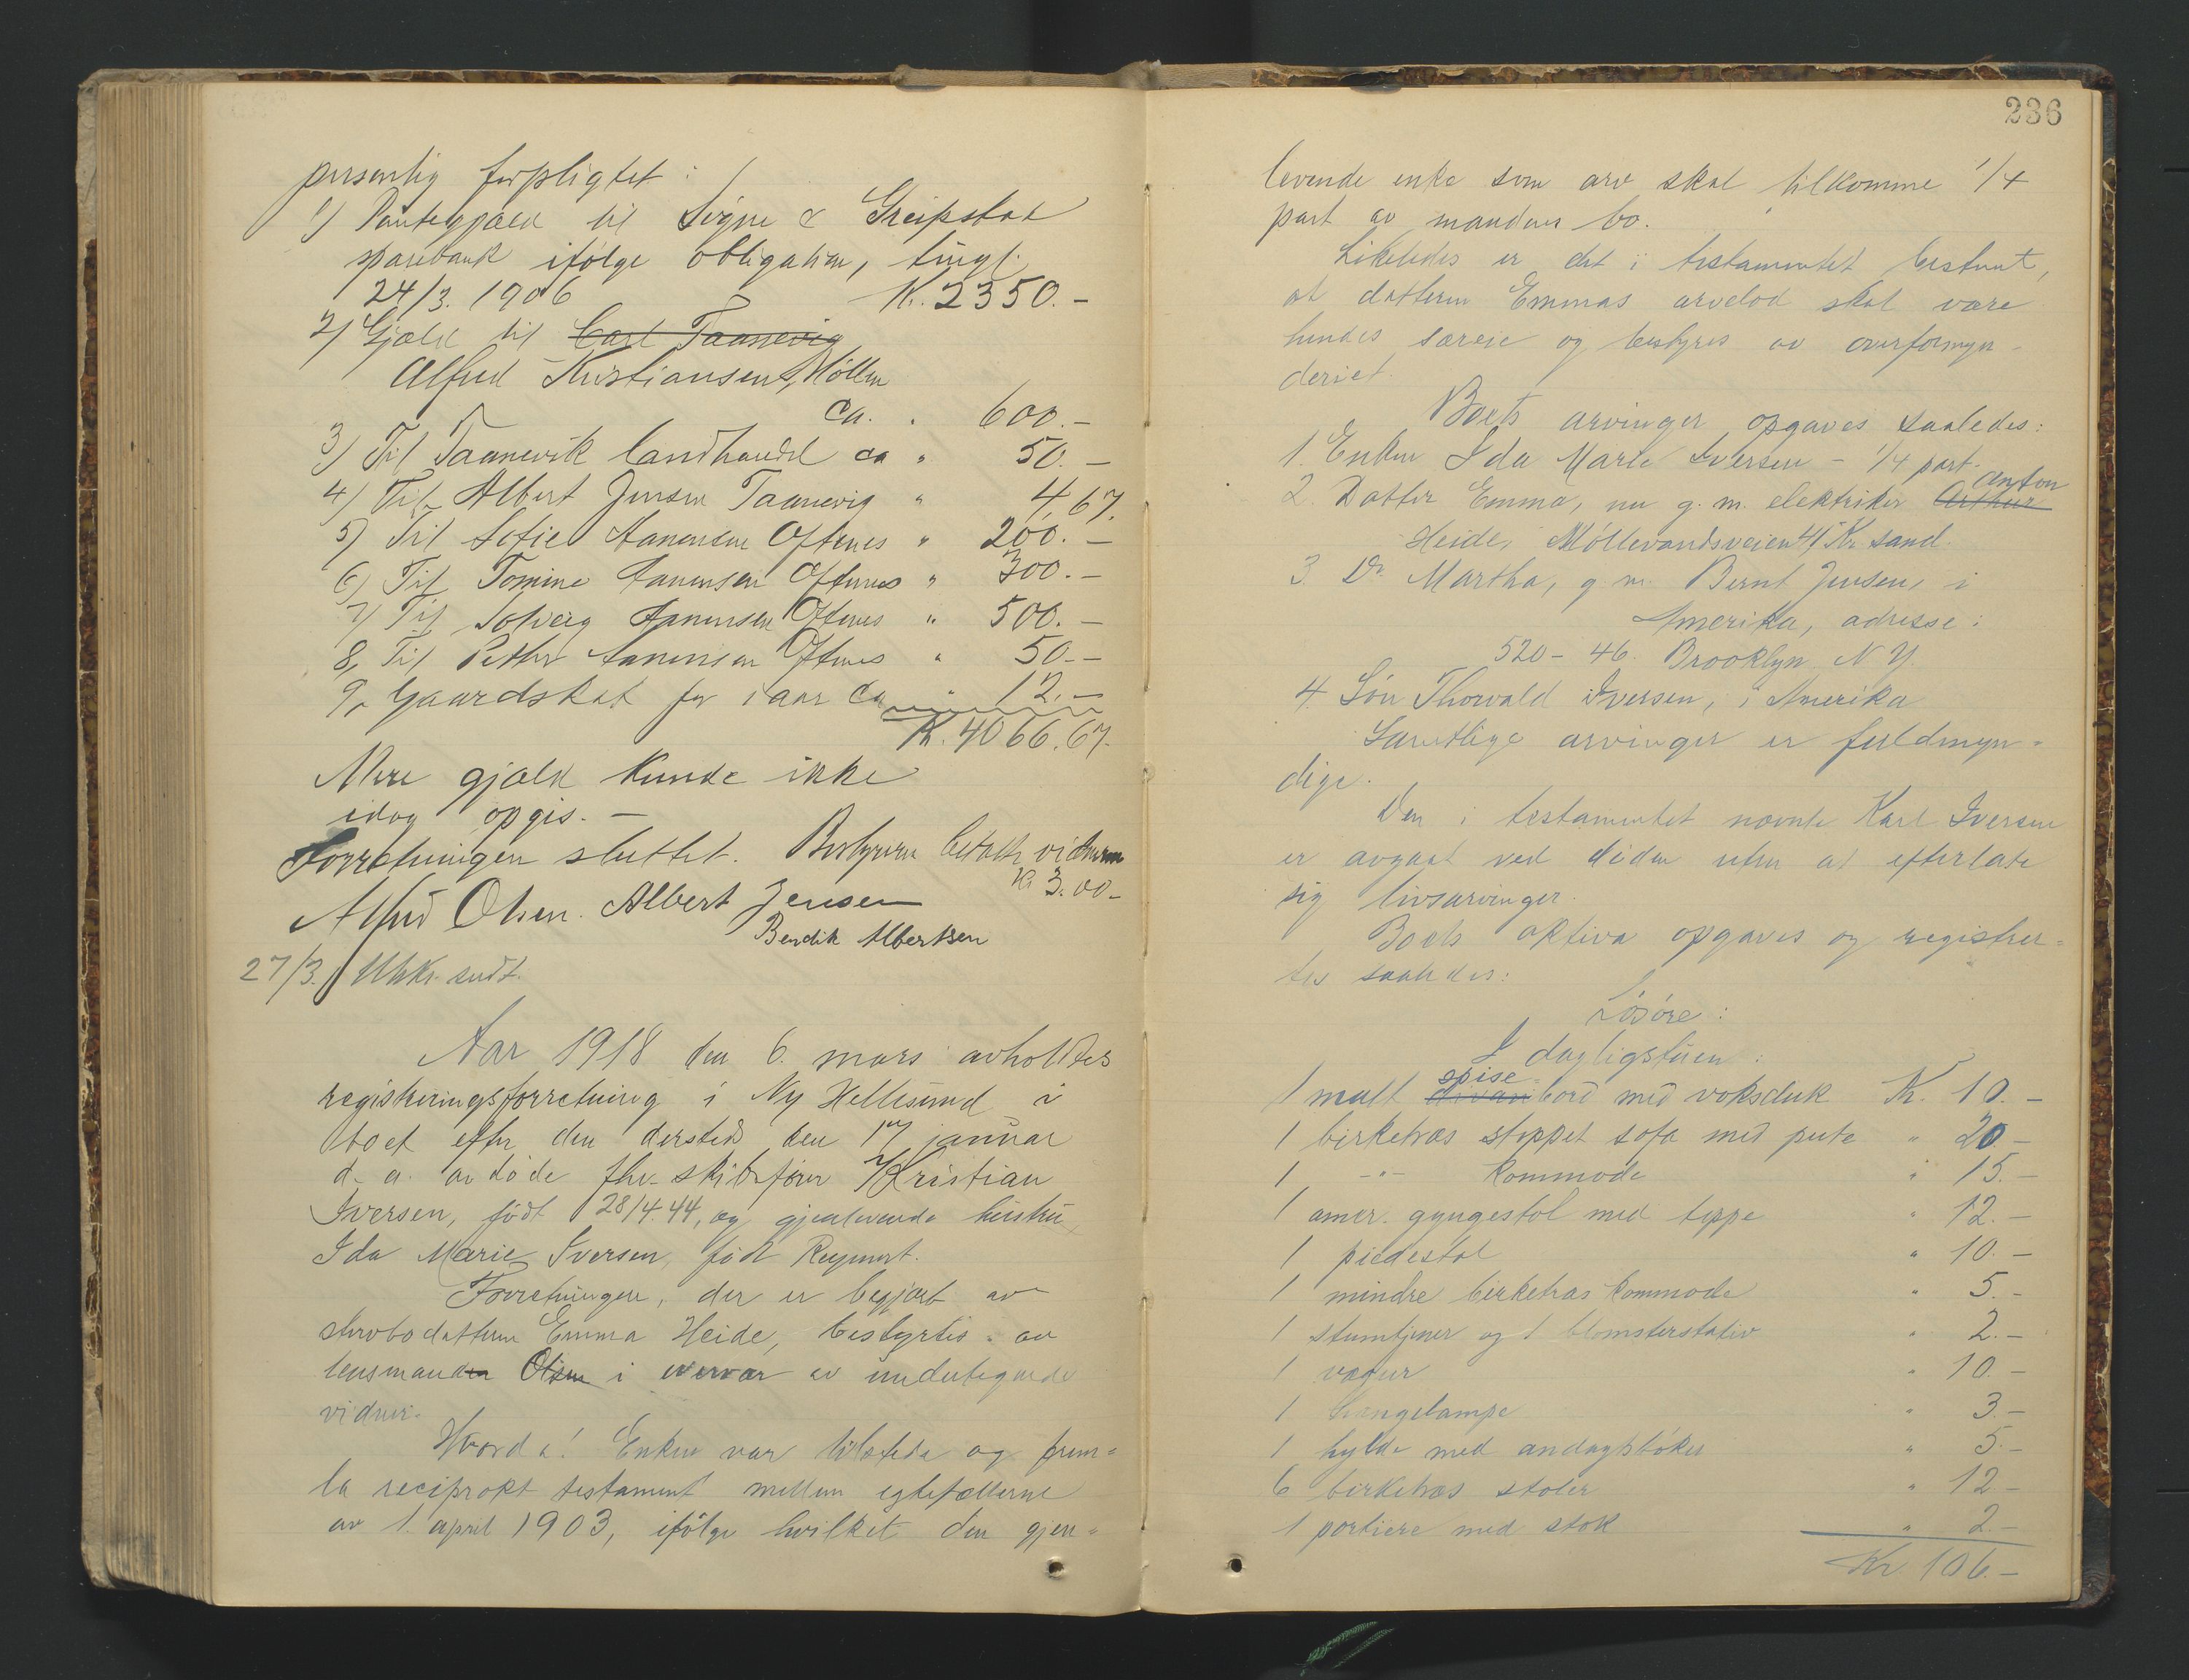 personlig forpligtet:
1) Pantegjæld til Søgne & Greipstad
sparebank ifølge obligation, tingl.
24/3. 1906 Kr. 2350.-
2) Gjæld til Carl Taanevig
Alfred Kristiansen, Møllen
ca. " 600.-
3) Til Taanevik landhandel ca " 50.-
4) Til Albert Jensen Taanevig " 4,67.
5) Til Sofie Aanensen Oftenes " 200.-
6) Til Tomine Aanensen Oftenes " 300.-
7) Til Solveig Aanensen Oftenes " 500.-
8, Til Petter Aanensen Oftenes " 50.-
9, Gaardskat for iaar ca " 12.-
Kr. 4066.67.
Mere gjæld kunde ikke
idag opgis.-
Forretningen sluttet. Bestyreren betalte vidnerne
Kr 3.00-
Alfred Olsen. Albert Jensen
Bendik Albertsen
27/3. Utskr. sendt.
Aar 1918 den 6. mars avholdtes
registreringsforretning i Ny Hellesund i
boet efter den dersteds den 17 januar
d. a. avdøde fhv. skibsfører Kristian
Iversen, født 28/4.44, og gjenlevende hustru,
Ida Marie Iversen, født Reymert.
Forretningen, der er begjært av
stervbodatteren Emma Heide, bestyrtes av
lensmanden Olsen i nærvær av undertegnede
vidner.
Hvorda! Enken var tilstede og frem=
la reciprokt testament mellem egtefællerne
av 1. april 1903, ifølge hvilket den gjen=
236
levende enke som arv skal tilkomme 1/4
part av mandens bo.
Likeledes er det i testamentet bestemt,
at datteren Emmas arvelod skal være
hendes særeie og bestyres av overformyn-
deriet.
Boets arvinger opgaves saaledes:
1. Enken Ida Marie Iversen - 1/4 part.
2. Datter Emma, nu g. m. elektriker Arthur Anton
Heide, Møllevandsveien 41 Kr.sand.
3. Do Martha, g. m. Bernt Jensen, i
Amerika, adresse:
520 - 46. Brooklyn N Y.
4. Søn Thorvald Iversen, i Amerika
Samtlige arvinger er fuldmyn=
dige.
Den i testamentet nævnte Karl Iversen
er avgaat ved døden uten at efterlate
sig livsarvinger.
Boets aktiva opgaves og registrer=
tes saaledes:
Løsøre:
I dagligstuen:
1 malt divan spise-bord med voksduk Kr. 10.-
1 birketræs stoppet sofa med pute " 20.-
1 -"- kommode " 15.-
1 amer. gyngestol med teppe " 12.-
1 piedestal " 10.-
1 mindre birketræs kommode " 5.-
1 stumtjener og 1 blomsterstativ " 2.-
1 vægur " 10.-
1 hængelampe " 3.-
1 hylde med andagtsbøker " 5.-
6 birketræs stoler " 12-
1 portiere med stok " 2.-
Kr. 106.-